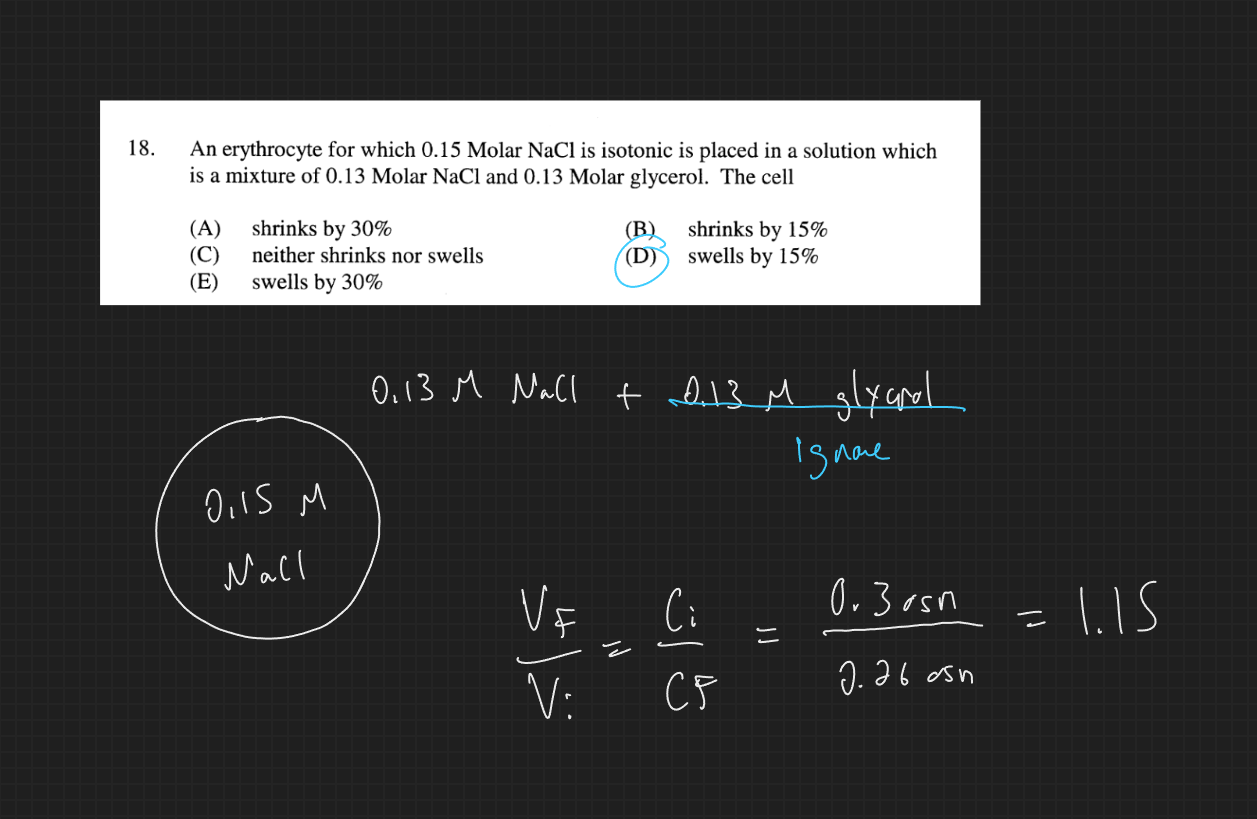 18. An erythrocyte for which 0.15 Molar NaCl is isotonic is placed in a solution which
is a mixture of 0.13 Molar NaCl and 0.13 Molar glycerol. The cell
(A) shrinks by 30% (B) shrinks by 15%
(C) neither shrinks nor swells (D) swells by 15%
(E) swells by 30%
0.13 M NaCl + 0.13 M glycerol
ignore
0.15 M
NaCl
VF/Vi = Ci/CF = 0.3 osm/0.26 osm = 1.15